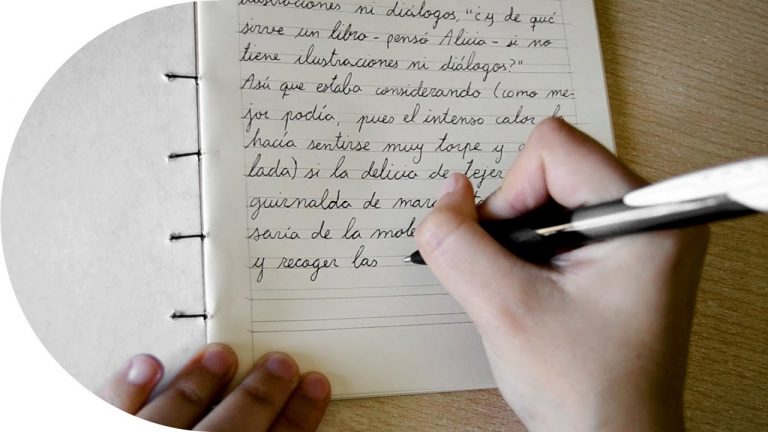 ilustraciones ni diálogos, "¿y de qué
sirve un libro - pensó Alicia - si no
tiene ilustraciones ni diálogos?"
Así que estaba considerando (como me-
jor podía, pues el intenso calor
hacía sentirse muy torpe y
lada) si la delicia de tejer
guirnalda de mar
saría de la mole
y recoger las